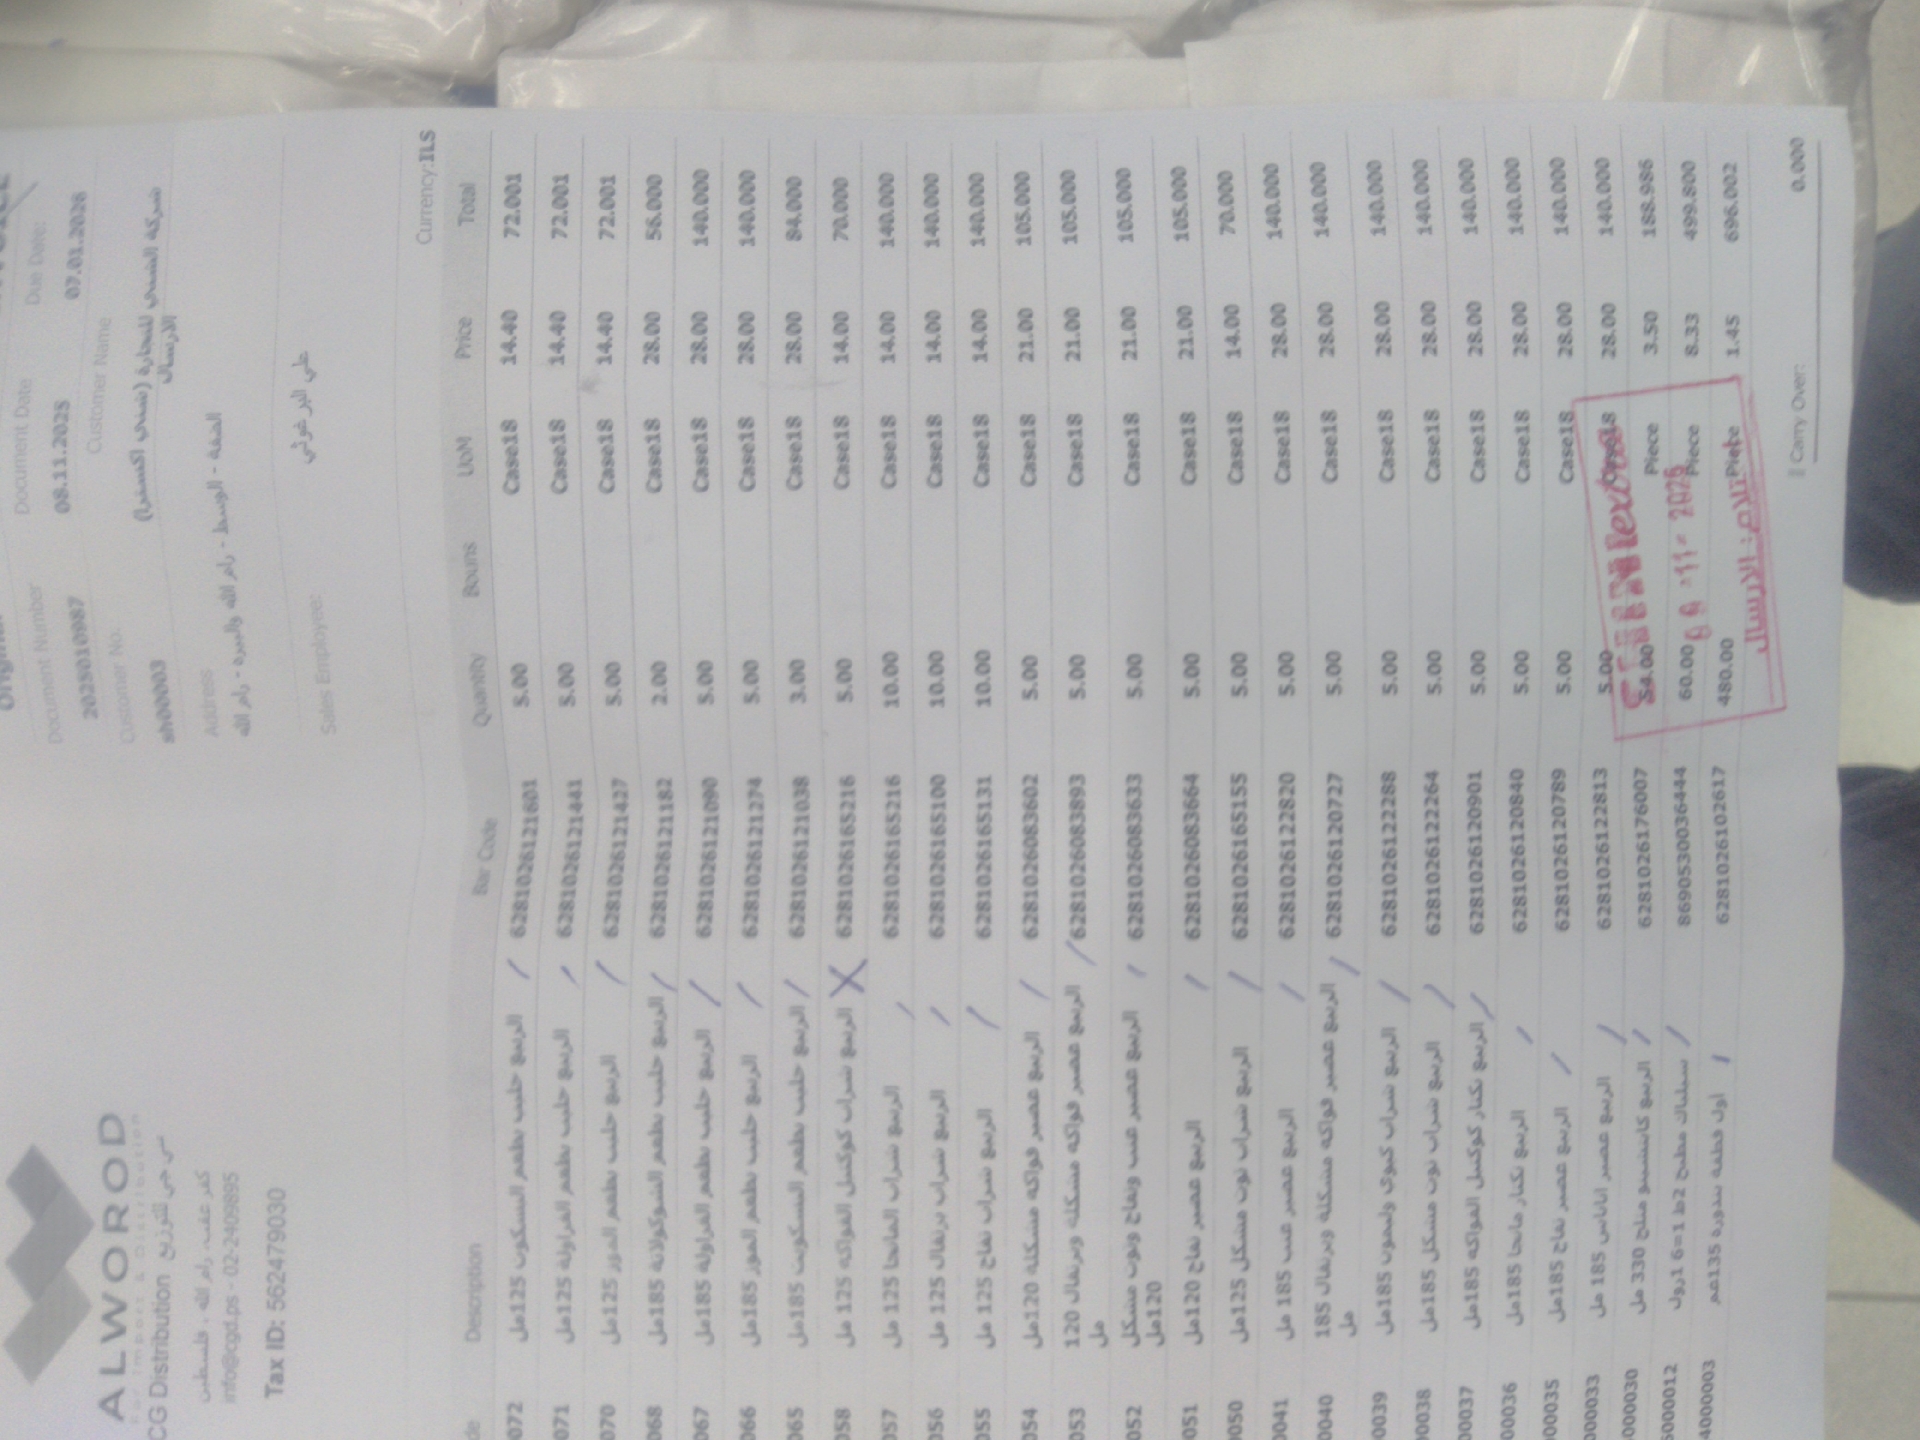 ALWOROD
For Import & Distribution
CG Distribution سي جي للتوزيع
كفر عقب، رام الله ، فلسطين
info@cgd.ps - 02-2409895
Tax ID: 562479030
Document Number Document Date Due Date:
2025010987 08.11.2025 07.01.2026
Customer No. Customer Name
sh00003 شركة الشني للتجارة (شني اكسترا) الارسال
Address
الضفة - الوسط - رام الله والبيرة - رام الله
Sales Employee: علي البرغوثي
Currency:ILS
Description Bar Code Quantity Bouns UoM Price Total
072 الربيع حليب بطعم البسكوت 125مل 6281026121601 5.00 Case18 14.40 72.001
071 الربيع حليب بطعم الفراولة 125مل 6281026121441 5.00 Case18 14.40 72.001
070 الربيع حليب بطعم الموز 125مل 6281026121427 5.00 Case18 14.40 72.001
068 الربيع حليب بطعم الشوكولاته 185مل 6281026121182 2.00 Case18 28.00 56.000
067 الربيع حليب بطعم الفراولة 185مل 6281026121090 5.00 Case18 28.00 140.000
066 الربيع حليب بطعم الموز 185مل 6281026121274 5.00 Case18 28.00 140.000
065 الربيع حليب بطعم البسكويت 185مل 6281026121038 3.00 Case18 28.00 84.000
058 الربيع شراب كوكتيل الفواكه 125 مل 6281026165216 5.00 Case18 14.00 70.000
057 الربيع شراب المانجا 125 مل 6281026165216 10.00 Case18 14.00 140.000
056 الربيع شراب برتقال 125 مل 6281026165100 10.00 Case18 14.00 140.000
055 الربيع شراب تفاح 125 مل 6281026165131 10.00 Case18 14.00 140.000
054 الربيع عصير فواكه مشكلة 120مل 6281026083602 5.00 Case18 21.00 105.000
053 الربيع عصير فواكه مشكله وبرتقال 120 مل 6281026083893 5.00 Case18 21.00 105.000
052 الربيع عصير عنب وتفاح وتوت مشكل 120مل 6281026083633 5.00 Case18 21.00 105.000
051 الربيع عصير تفاح 120مل 6281026083664 5.00 Case18 21.00 105.000
0050 الربيع شراب توت مشكل 125مل 6281026165155 5.00 Case18 14.00 70.000
0041 الربيع عصير عنب 185 مل 6281026122820 5.00 Case18 28.00 140.000
0040 الربيع عصير فواكه مشكله وبرتقال 185 مل 6281026120727 5.00 Case18 28.00 140.000
00039 الربيع شراب كيوي وليمون 185مل 6281026122288 5.00 Case18 28.00 140.000
00038 الربيع شراب توت مشكل 185مل 6281026122264 5.00 Case18 28.00 140.000
00037 الربيع نكتار كوكتيل الفواكه 185مل 6281026120901 5.00 Case18 28.00 140.000
00036 الربيع نكتار مانجا 185مل 6281026120840 5.00 Case18 28.00 140.000
00035 الربيع عصير تفاح 185مل 6281026120789 5.00 Case18 28.00 140.000
00033 الربيع عصير اناناس 185 مل 6281026122813 5.00 Case18 28.00 140.000
000030 الربيع كابتشينو مثلج 330 مل 6281026176007 54.00 Piece 3.50 188.986
6000012 سبتاك مطبخ 2ط 1=6 1رول 8690530036444 60.00 Piece 8.33 499.800
4000003 اول قطفة بندورة 135غم 6281026102617 480.00 Piece 1.45 696.002
extra
09 -11- 2025
الارسال
Carry Over: 0.000